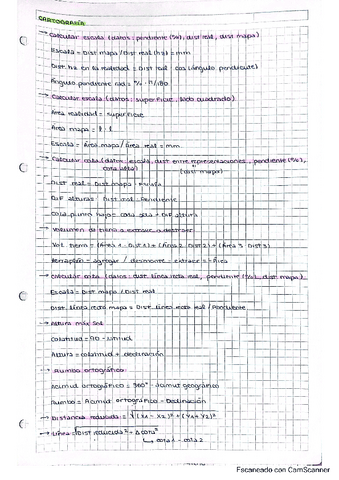 CARTOGRAFÍA
→ Calcular escala (datos: pendiente (%), dist real, dist mapa)
Escala = Dist mapa / Dist real (hz) = mm
Dist hz en la realidad = Dist real · cos (ángulo pendiente)
Ángulo pendiente rad = % · π / 180
→ Calcular escala (datos: superficie, lado cuadrado)
Área realidad = superficie
Área mapa = l · l
Escala = Área mapa / Área real = mm
→ Calcular cota (datos: escala, dist entre representaciones, pendiente (%),
cota alta) (dist mapa)
Dist real = Dist mapa · Escala
Dif alturas = Dist real · Pendiente
Cota punto bajo = cota alta - Dif altura
→ Volumen de tierra a extraer o
Vol tierra = (Área 1 · Dist 1) + (Área 2 · Dist 2) + (Área 3 · Dist 3)
Terraplén = agregar / desmonte = extraer = - Área
→ Calcular cota (datos: dist línea recta real, pendiente (%), dist mapa)
Escala = Dist mapa / Dist real
Dist línea recta mapa = Dist línea recta real / Pendiente
→ Altura máx Sol
Colatitud = 90 - latitud
Altura = colatitud + declinación
→ Rumbo ortográfico
Acimut ortográfico = 360° - Acimut geográfico
Rumbo = Acimut ortográfico - Declinación
→ Distancia reducida = √(X1 - X2)² + (Y1 - Y2)²
→ Línea = √Dist reducida² + Δcota²
↳ cota 1 - cota 2
Escaneado con CamScanner